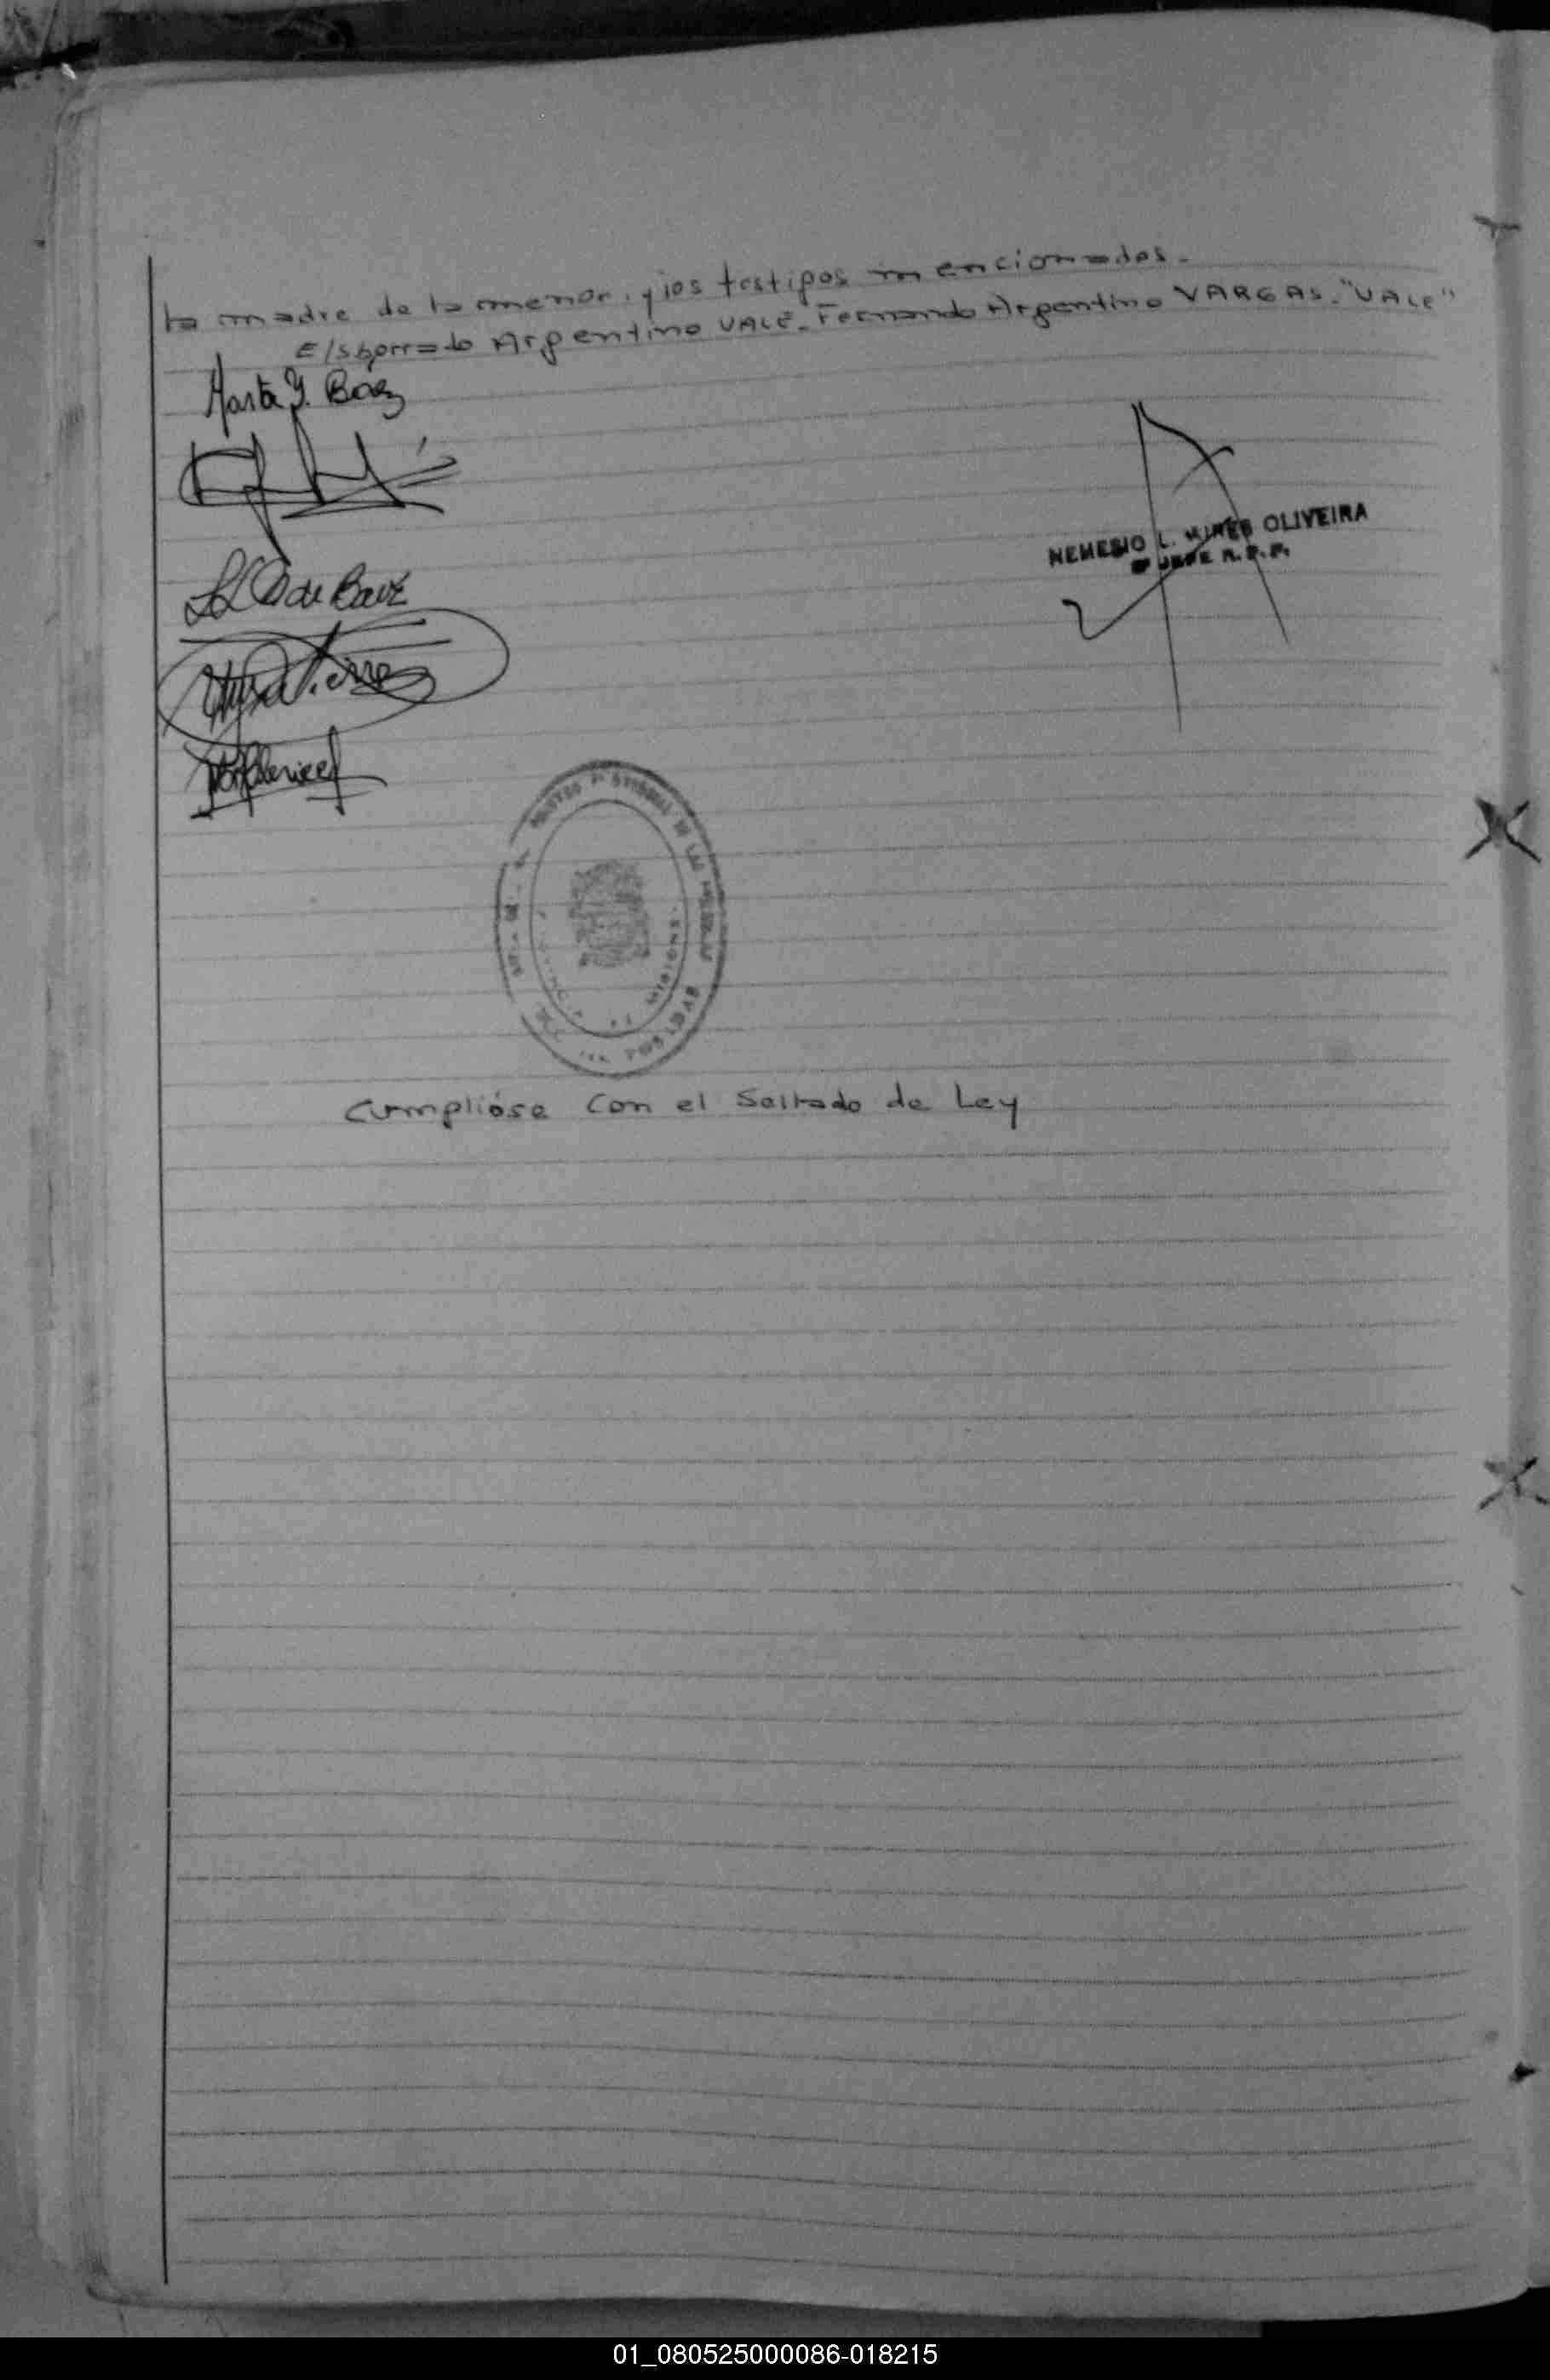 la madre de la menor, y los testigos mencionados.-
E/sborrado Argentino VALE.- Fernando Argentino VARGAS.- "VALE"
Marta Y. Baez
de Baez
NEMESIO L. MIRES OLIVEIRA
JEFE R. P. P.
DE LAS
POSADAS
MISIONES
Cumplióse con el Sellado de Ley
01_080525000086-018215